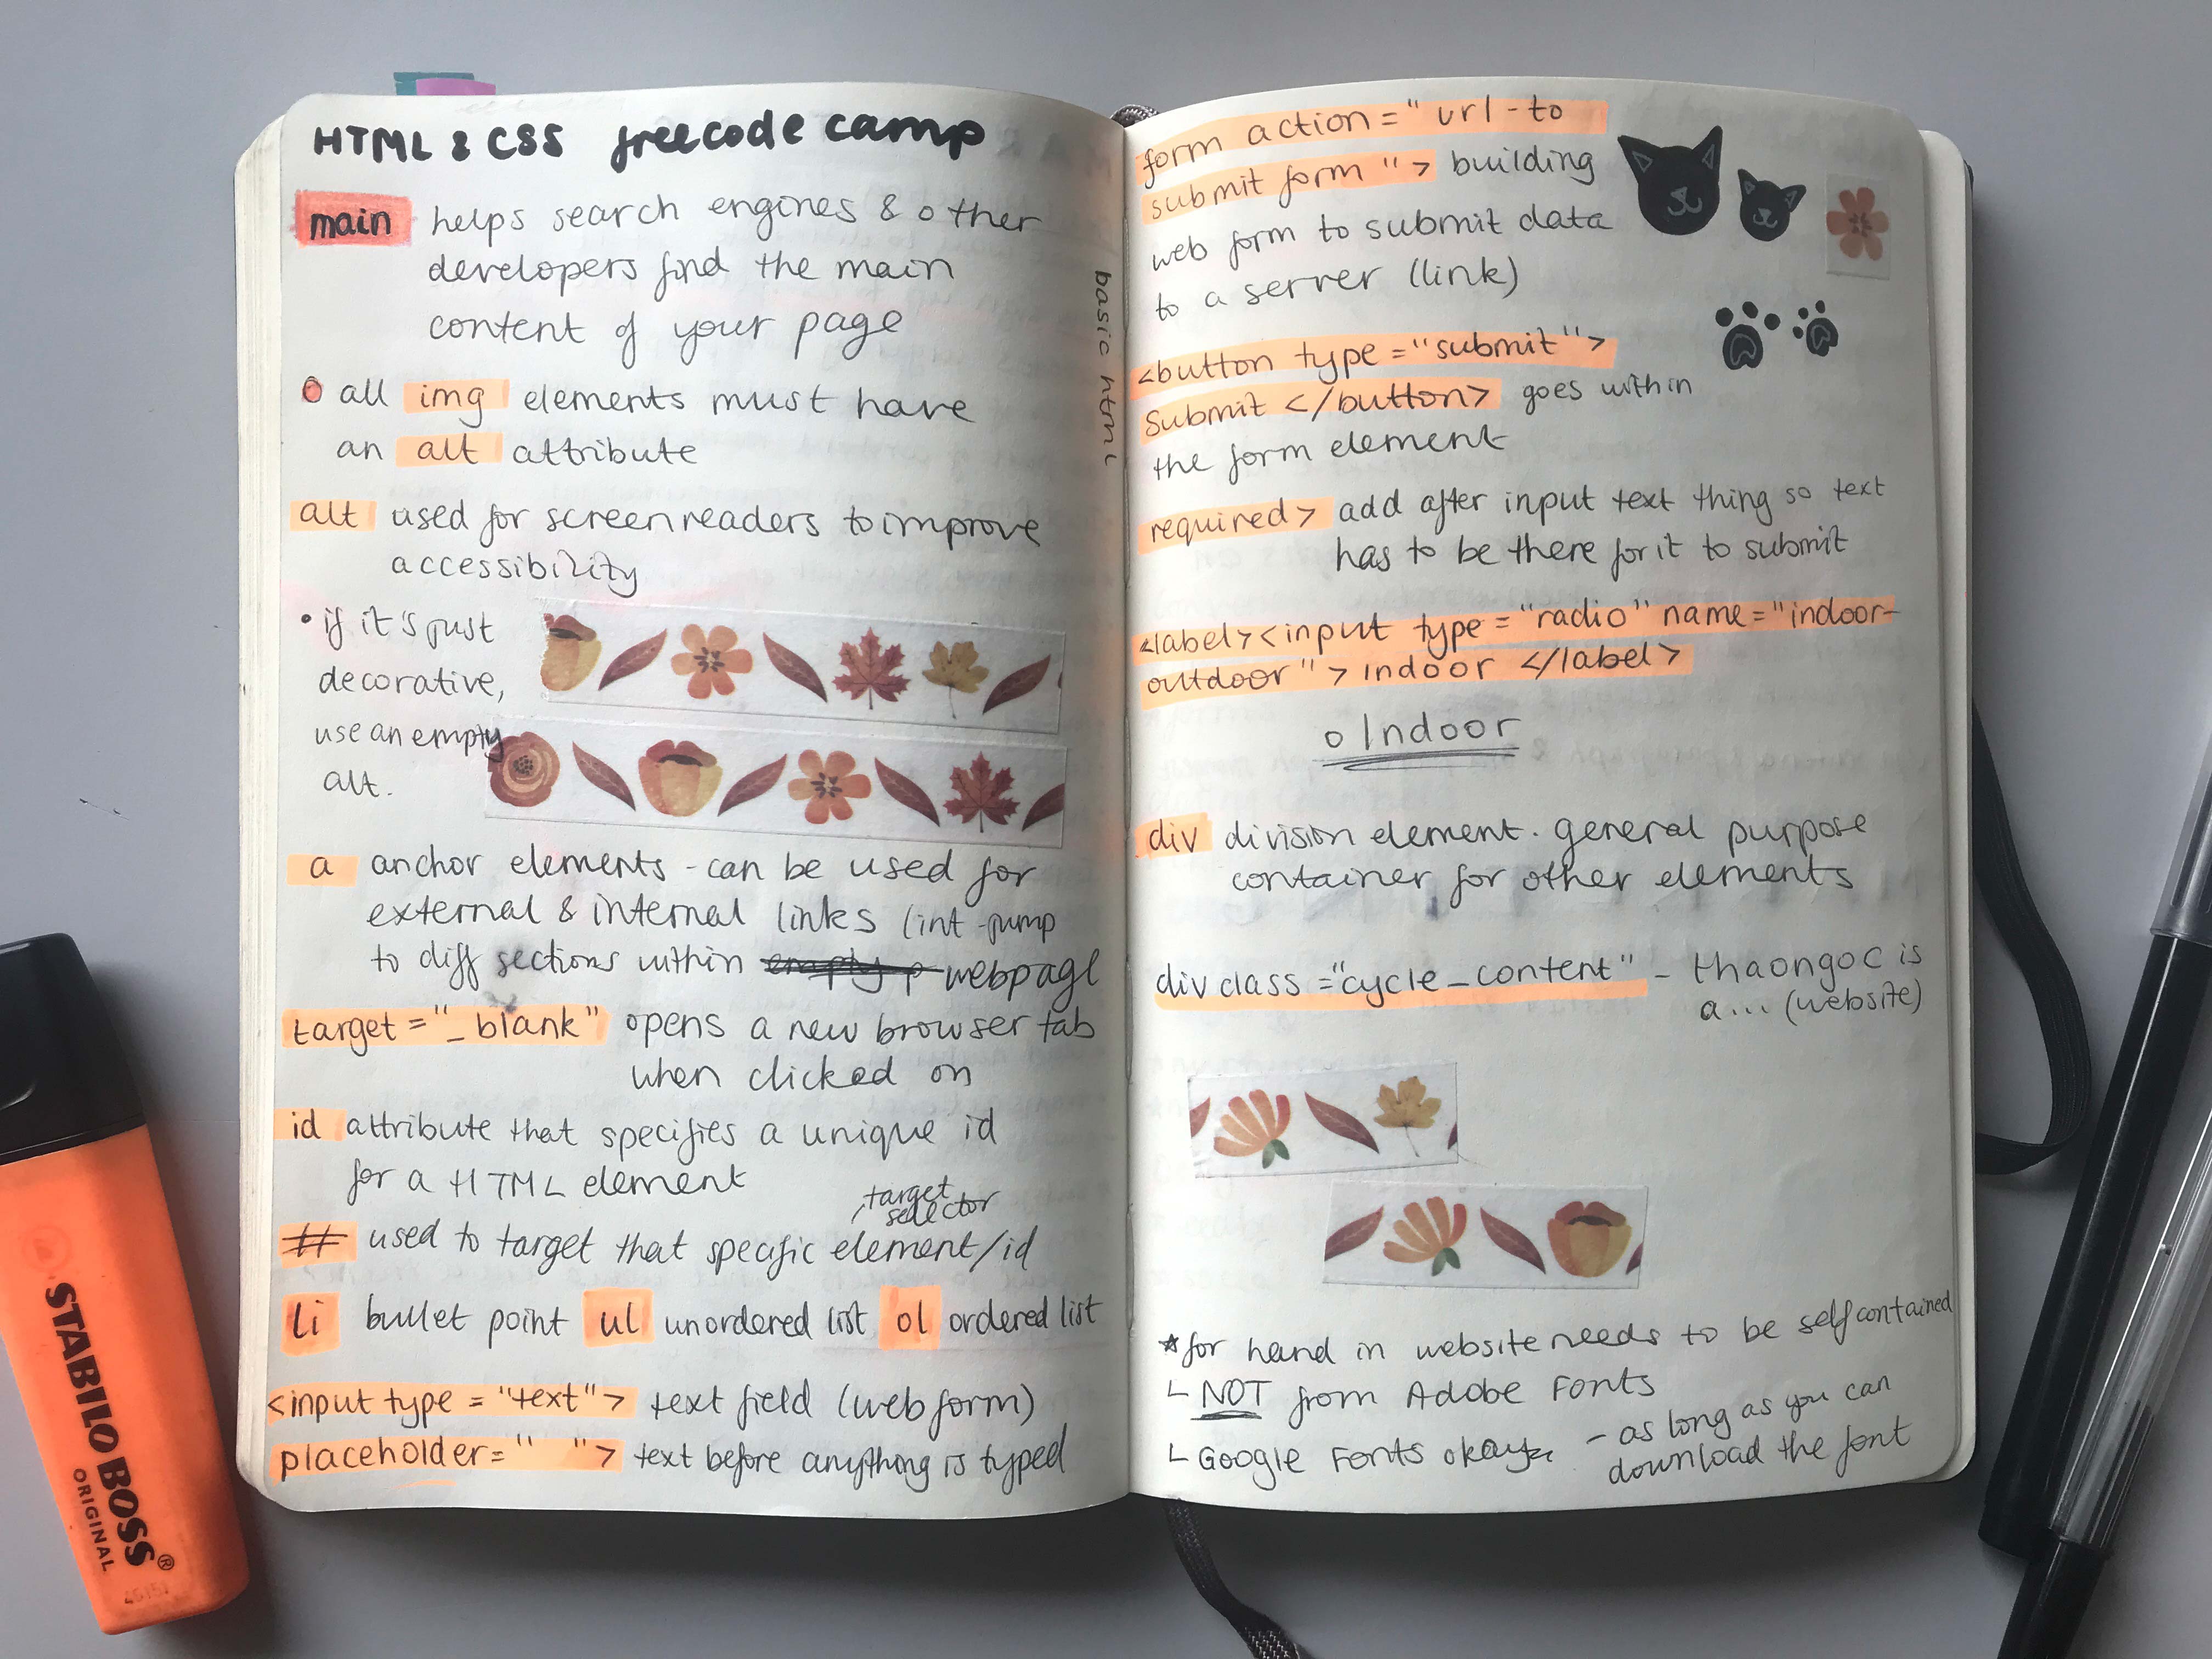 HTML & CSS freecodecamp
main helps search engines & other
developers find the main
content of your page
all img elements must have
an alt attribute
alt used for screenreaders to improve
accessibility
• if it's just
decorative,
use an empty
alt.
a anchor elements - can be used for
external & internal links (int - jump
to diff sections within webpage
target="_blank" opens a new browser tab
when clicked on
id attribute that specifies a unique id
for a HTML element
target
selector
# used to target that specific element/id
li bullet point ul unordered list ol ordered list
<input type = "text"> text field (web form)
placeholder=" "> text before anything is typed
basic html
form action = "url-to
submit form"> building
web form to submit data
to a server (link)
<button type="submit">
Submit </button> goes within
the form element
required> add after input text thing so text
has to be there for it to submit
<label><input type = "radio" name = "indoor-
outdoor"> Indoor </label>
o Indoor
div division element. general purpose
container for other elements
div class ="cycle_content" - thaongoc is
a... (website)
* for hand in website needs to be self contained
└ NOT from Adobe Fonts
└ Google Fonts okay - as long as you can
download the font
STABILO BOSS®
ORIGINAL